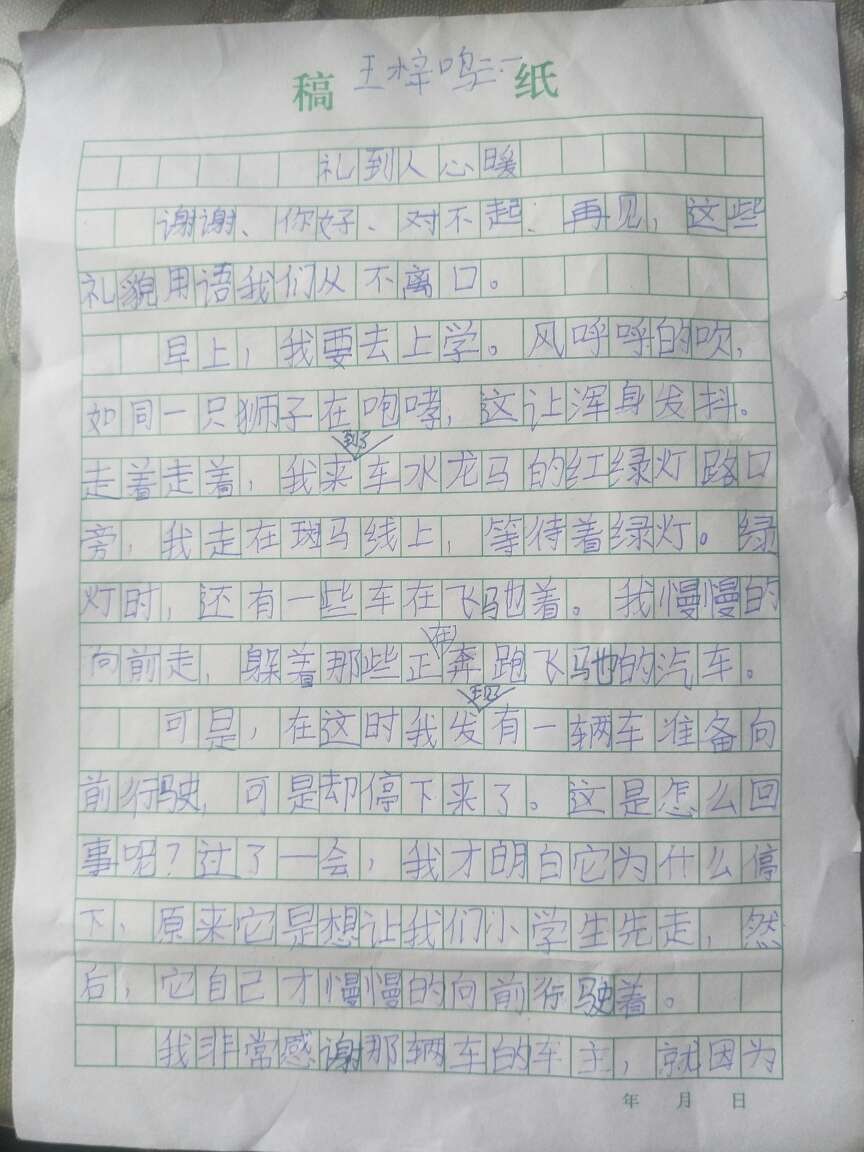 稿 王梓鸣三.一 纸
礼到人心暖
谢谢、你好、对不起、再见，这些
礼貌用语我们从不离口。
早上，我要去上学。风呼呼的吹，
如同一只狮子在咆哮，这让浑身发抖。
到了
走着走着，我来车水龙马的红绿灯路口
旁，我走在斑马线上，等待着绿灯。绿
灯时，还有一些车在飞驰着。我慢慢的
在
向前走，躲着那些正奔跑飞驰的汽车。
现
可是，在这时我发有一辆车准备向
前行驶，可是却停下来了。这是怎么回
事呢？过了一会，我才明白它为什么停
下，原来它是想让我们小学生先走，然
后，它自己才慢慢的向前行驶着。
我非常感谢那辆车的车主，就因为
年 月 日